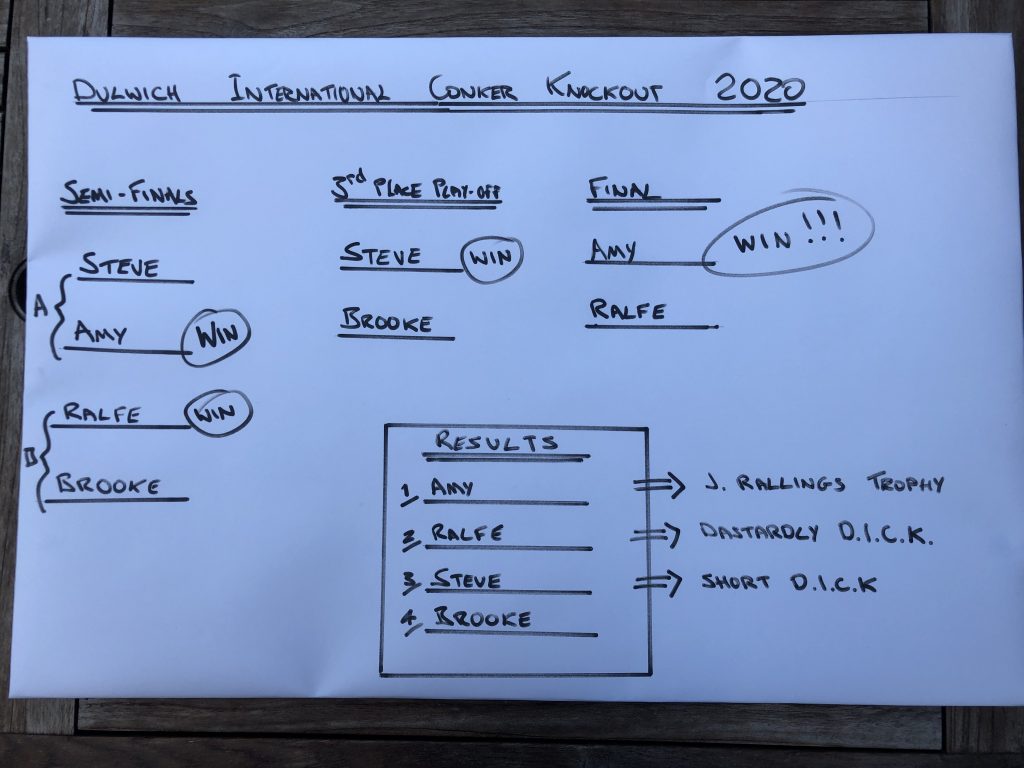 DULWICH INTERNATIONAL CONKER KNOCKOUT 2020
SEMI-FINALS
A
STEVE
AMY WIN
B
RALFE WIN
BROOKE
3rd PLACE PLAY-OFF
STEVE WIN
BROOKE
FINAL
AMY WIN !!!
RALFE
RESULTS
1, AMY ⇒ J. RALLINGS TROPHY
2, RALFE ⇒ DASTARDLY D.I.C.K.
3, STEVE ⇒ SHORT D.I.C.K
4, BROOKE